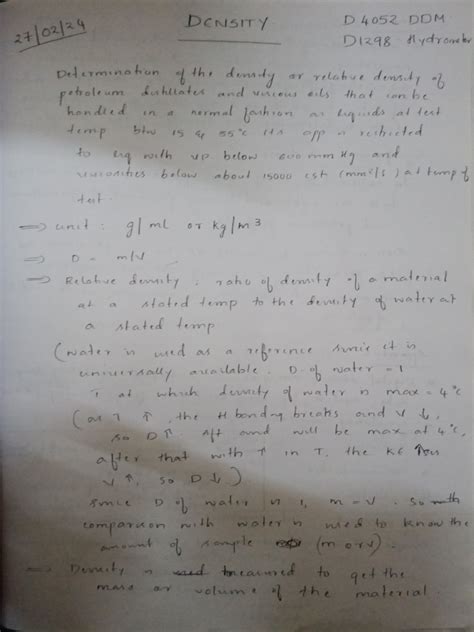 27/02/24
DENSITY
D 4052 DDM
D1298 Hydrometer
Determination of the density or relative density of
petroleum distillates and viscous oils that can be
handled in a normal fashion as liquids at test
temp btw 15 & 35°C its app is restricted
to liq with VP below 600 mm Hg and
viscosities below about 15000 cSt (mm²/s) at temp of
test.
⇒ unit : g/ml or kg/m3
⇒ D = m/V
⇒ Relative density : ratio of density of a material
at a stated temp to the density of water at
a stated temp
(water is used as a reference since it is
universally available. D of water = 1
T at which density of water is max = 4°C
(as T ↑, the H bonding breaks and V ↓,
so D ↑. and will be max at 4°C,
after that with ↑ in T, the KE ↑
V ↑, so D ↓)
since D of water is 1, m = V. So
comparison with water is used to know the
amount of sample (m or v).
⇒ Density is measured to get the
mass or volume of the material